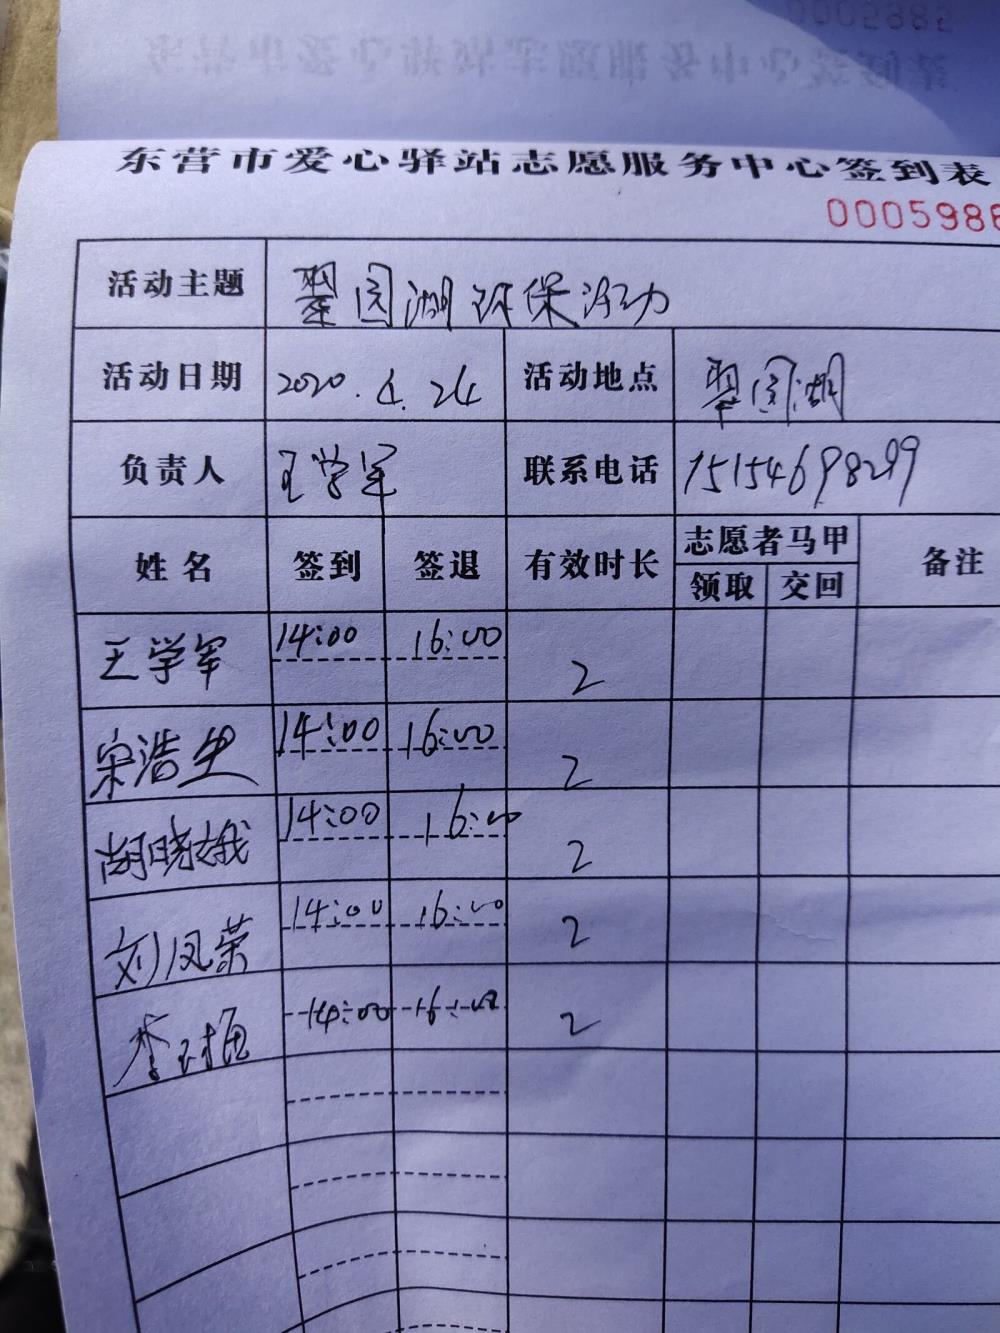 东营市爱心驿站志愿服务中心签到表
000598
活动主题 翠园湖环保活动
活动日期 2020.4.24 活动地点 翠园湖
负责人 王学军 联系电话 15154698299
姓名 签到 签退 有效时长 志愿者马甲 备注
领取 交回
王学军 14:00 16:00 2
宋浩 14:00 16:00 2
胡晓娥 14:00 16:00 2
刘凤荣 14:00 16:00 2
李 14:00 16:00 2